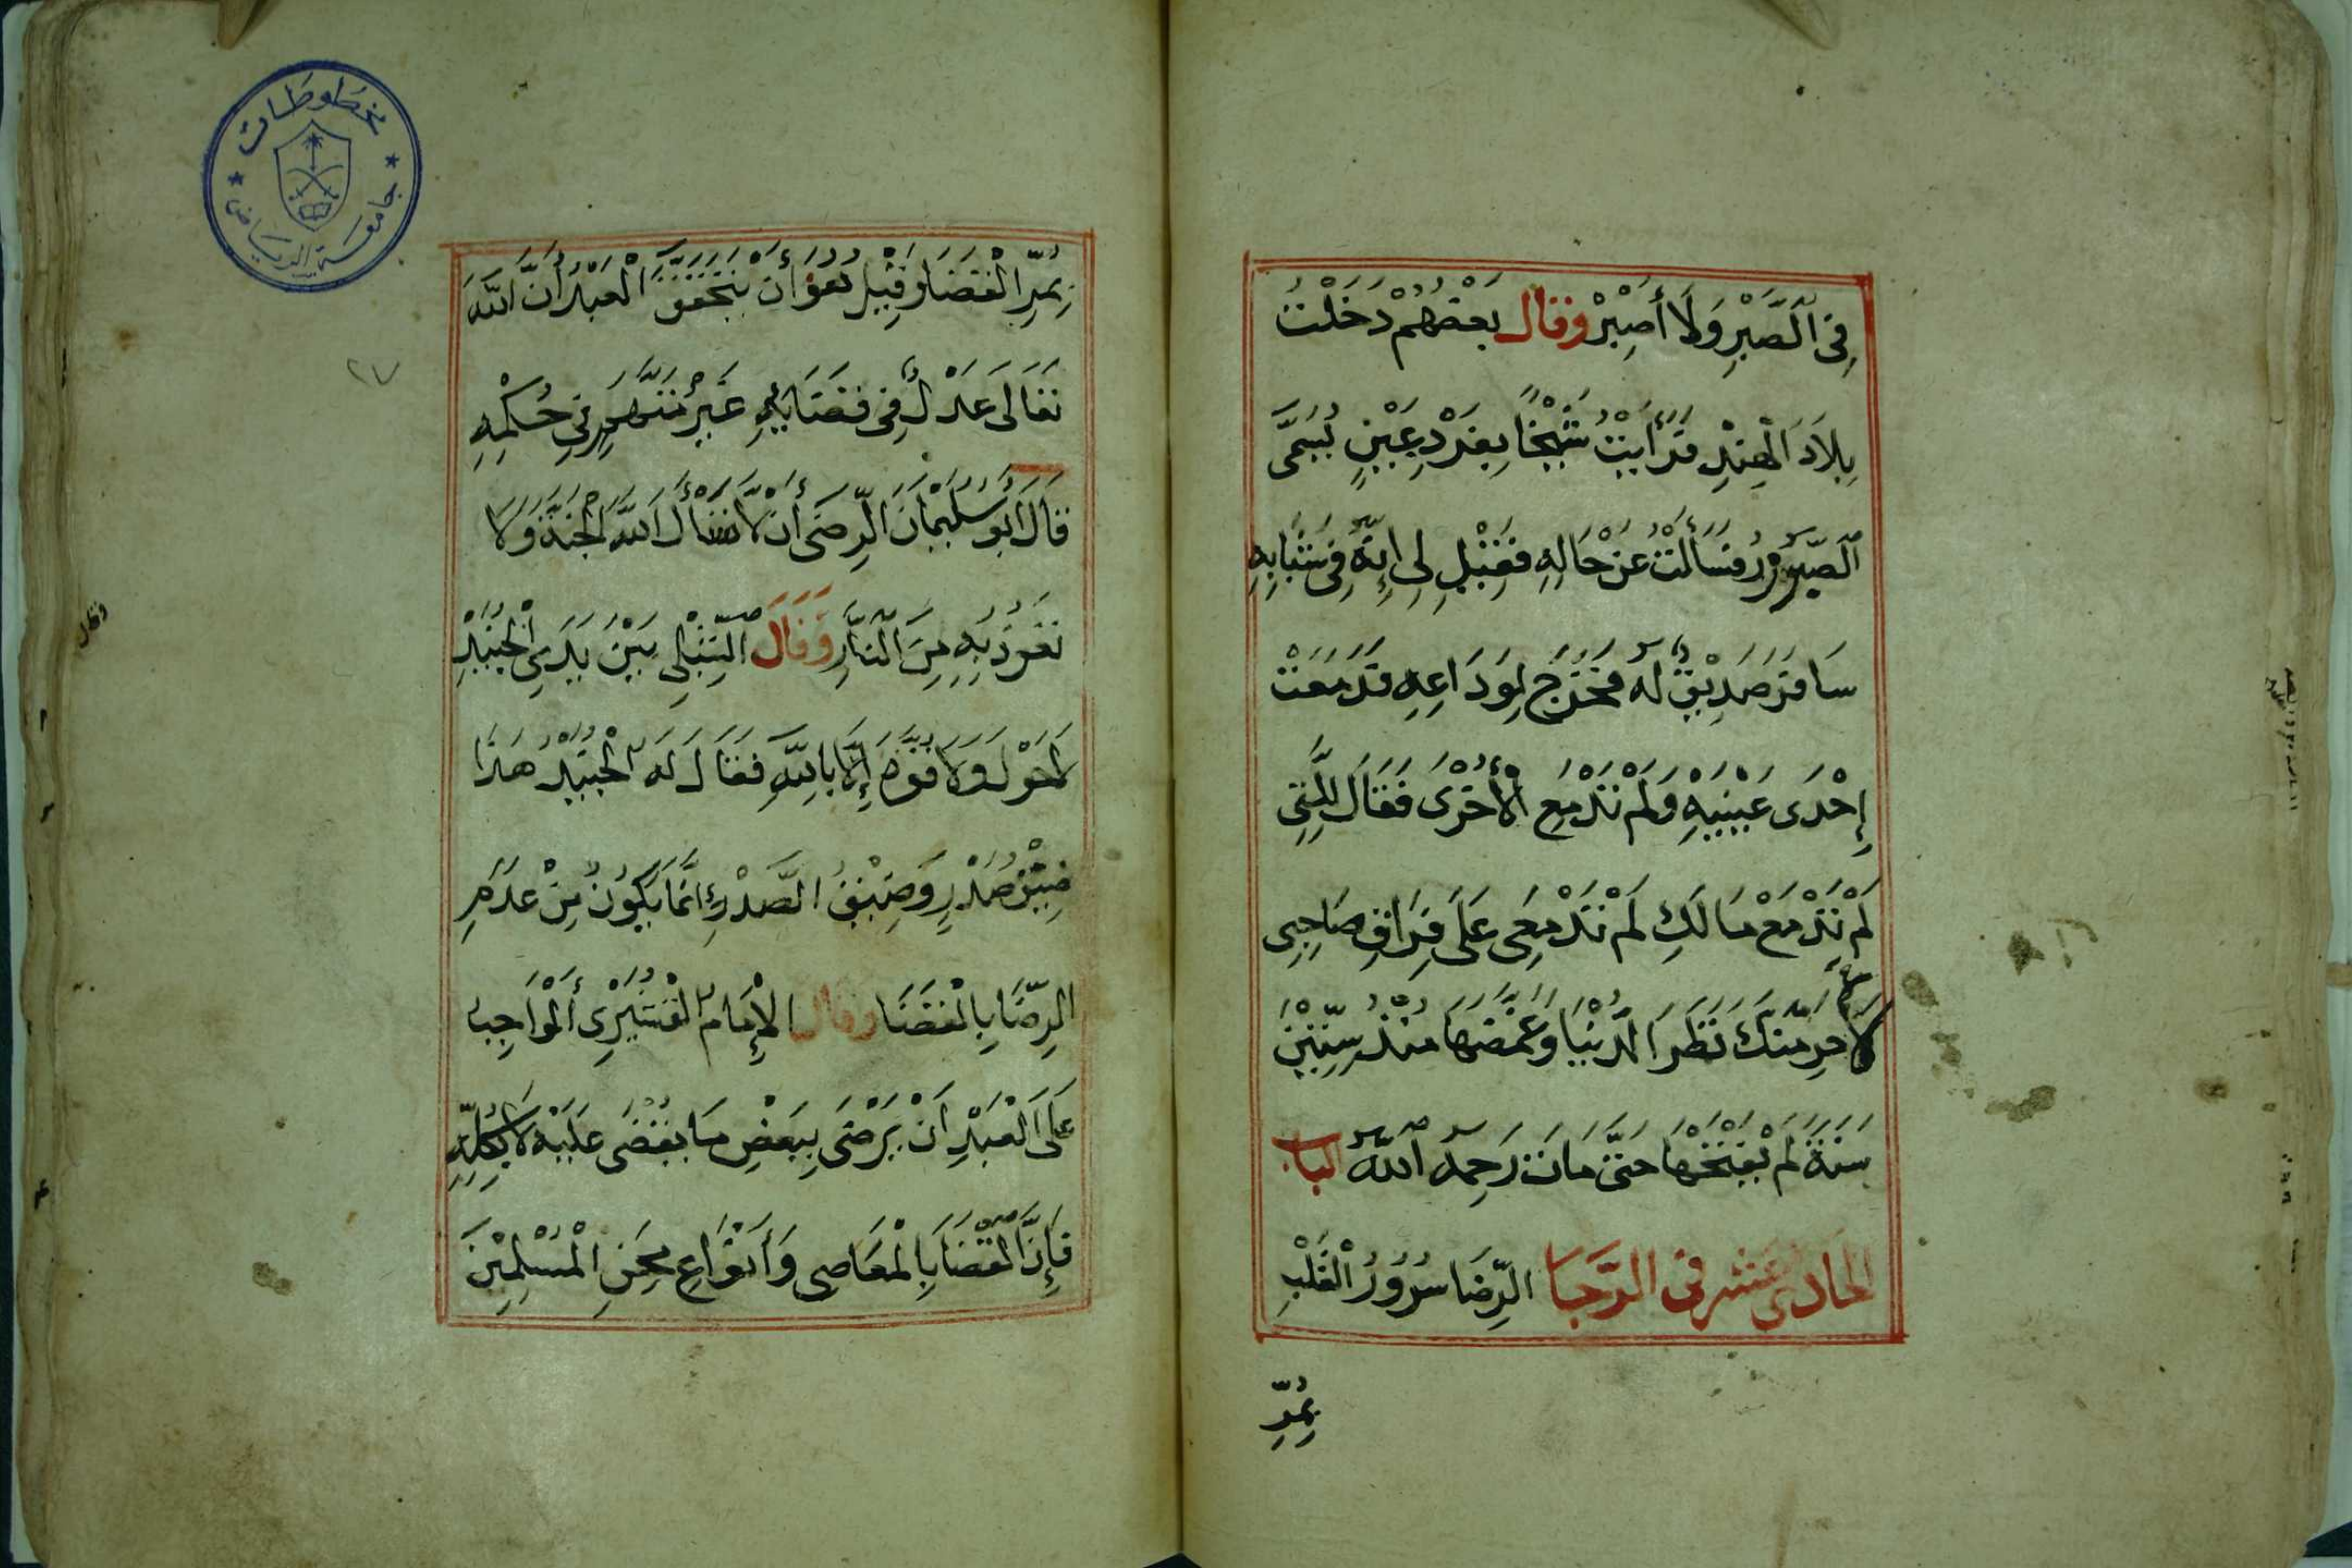 فِى الصَّبْرِ وَلَا أَصِيْرُ وقال بَعْضُهُمْ دَخَلْتُ
بِلَادَ الْهِنْدِ فَرَأَيْتُ شَيْخًا بِفَرْدِ عَيْنٍ يُسَمَّى
الصَّبُوْرُ فَسَأَلْتُ عَنْ حَالِهِ فَقِيْلِ لِى إِنَّهُ فِى شَبَابِهِ
سَافَرَ صَدِيْقٌ لَهُ فَخَرَجَ لِوَدَاعِهِ فَدَمَعَتْ
إِحْدَى عَيْنَيْهِ وَلَمْ تَدْمَعِ الْأُخْرَى فَقَالَ لِلَّتِى
لَمْ تَدْمَعْ مَا لَكِ لَمْ تَدْمَعِى عَلَى فِرَاقِ صَاحِبِى
لَا حَرِمَنَّكَ نَظَرَ الدُّنْيَا وَغَمَّضَهَا مُنْذُ سِتِّيْنَ
سَنَةً لَمْ يَفْتَحْهَا حَتَّى مَاتَ رَحِمَهُ اللّٰهُ الباب
الحادى عشر فى الرَّجبا الرِّضَا سُرُوْرُ الْقَلْبِ
بِمُرِّ
مخطوطات
جامعة الرياض
بِمُرِّ الْقَضَا وَقِيْلَ هُوَ أَنْ يَتَحَقَّقَ الْعَبْدُ أَنَّ اللّٰهَ
٢٧
تَعَالَى عَدْلٌ فِى قَضَايَهِ غَيْرُ مُتَّهَمٍ فِي حُكْمِهِ
قَالَ أَبُو سُلَيْمَانَ الرِّضَى أَنْ لَا تَسْأَلَ اللّٰهَ الْجَنَّةَ وَلَا
تَعَوُذَ بِهِ مِنَ النَّارِ وَقَالَ الشِّبْلِى بَيْنَ يَدَيِ الْجُنَيْدِ
لَاحَوْلَ وَلَا قُوَّةَ إِلَّا بِاللّٰهِ فَقَالَ لَهُ الْجُنَيْدُ هَذَا
ضِيْقُ صَدْرٍ وَضِيْقُ الصَّدْرِ إِنَّمَا يَكُوْنُ مِنْ عَدَمِ
الرِّضَا بِالْقَضَا وقال الْإِمَامُ الْقُشَيْرِى أَلْوَاجِبُ
عَلَى الْعَبْدِ اَنْ يَرْضَى بِبَعْضِ مَا يُقْضَى عَلَيْهِ لَا بِكُلِّهِ
فَإِنَّ الْقَضَا بِالْمَعَاصِى وَأَنْوَاعِ مِحَنِ الْمُسْلِمِيْنَ